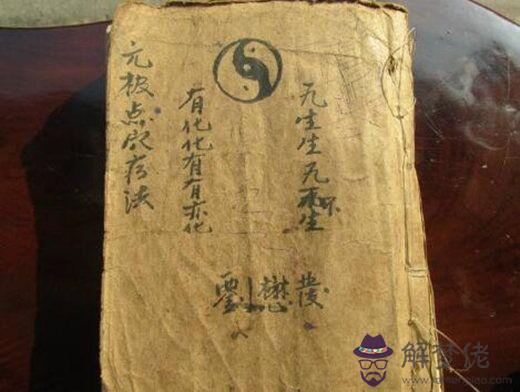 无生生无不生
有化化有有亦化
元极点存法
劉懋
解梦佬